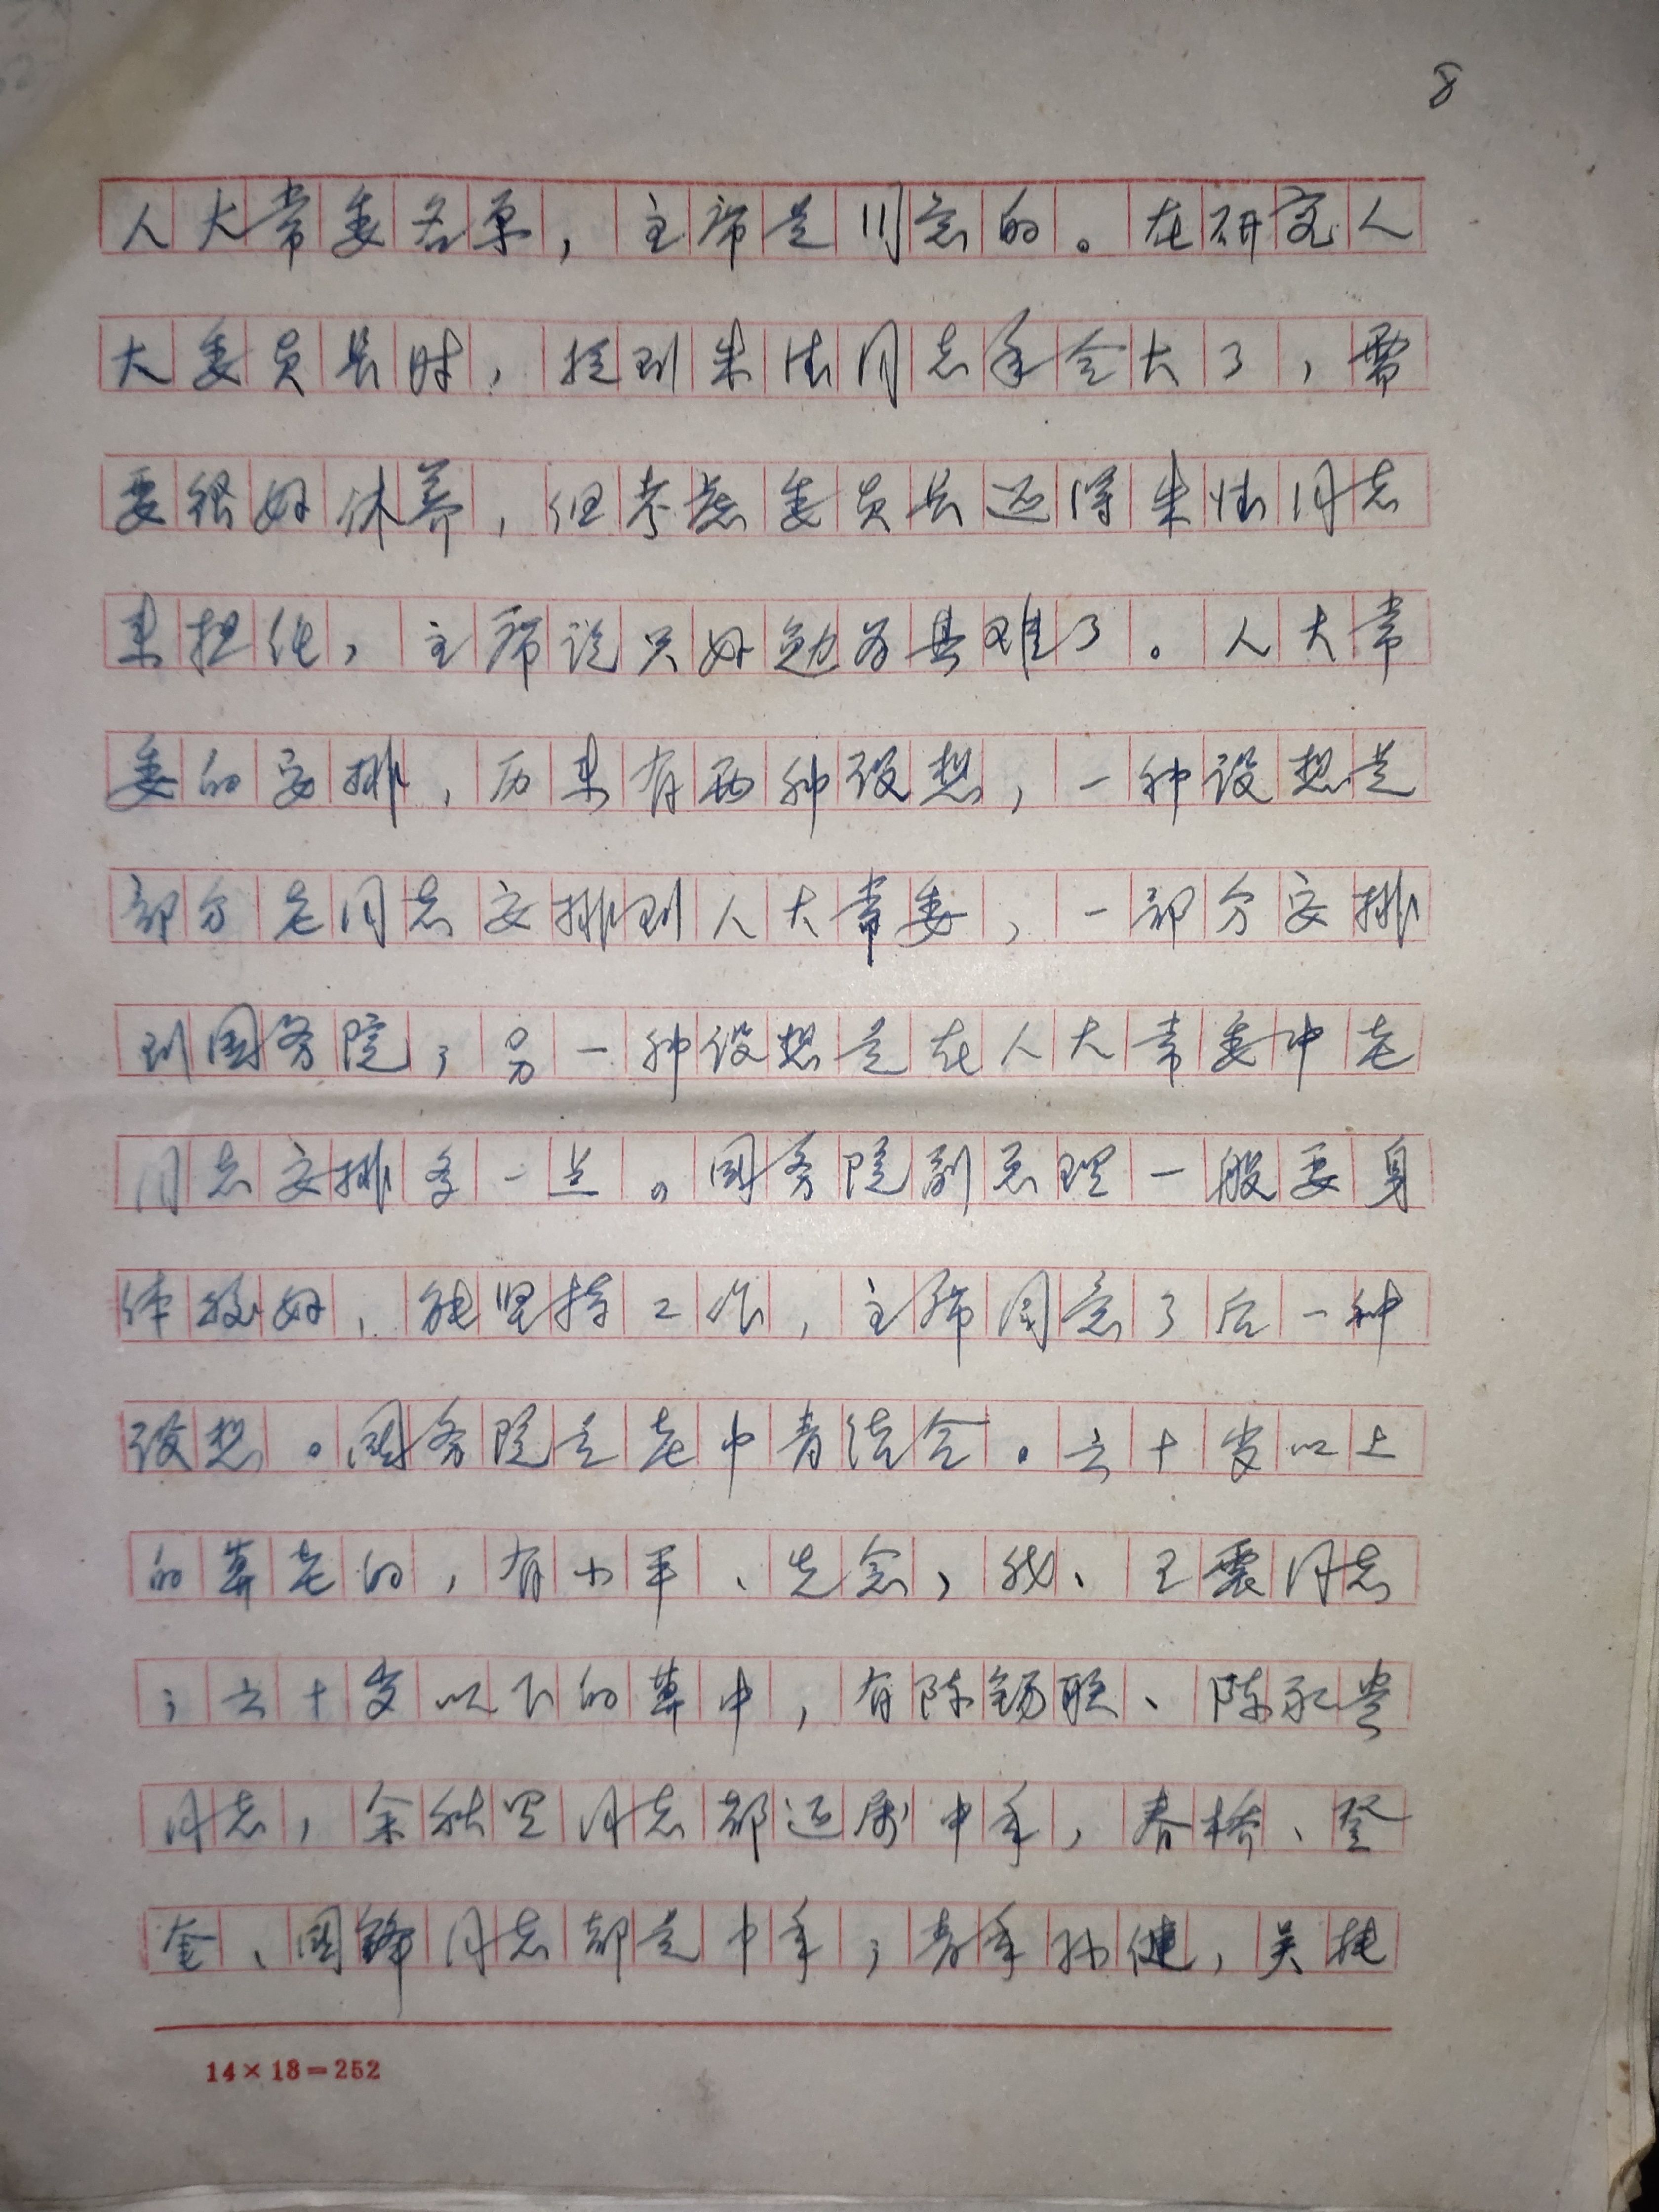 8
人大常委名单，主席是同意的。在研究人
大委员长时，提到朱德同志年令大了，需
要很好休养，但考虑委员长还得朱德同志
来担任，主席说只好勉为其难了。人大常
委的安排，历来有两种设想，一种设想是
部分老同志安排到人大常委，一部分安排
到国务院；另一种设想是在人大常委中老
同志安排多一些。国务院副总理一般要身
体较好，能坚持工作，主席同意了后一种
设想。国务院是老中青结合。六十岁以上
的算老的，有小平、先念，我、王震同志
；六十岁以下的算中，有陈锡联、陈永贵
同志，余秋里同志都还属中年，春桥、登
奎、国锋同志都是中年；青年孙健，吴桂
14×18=252